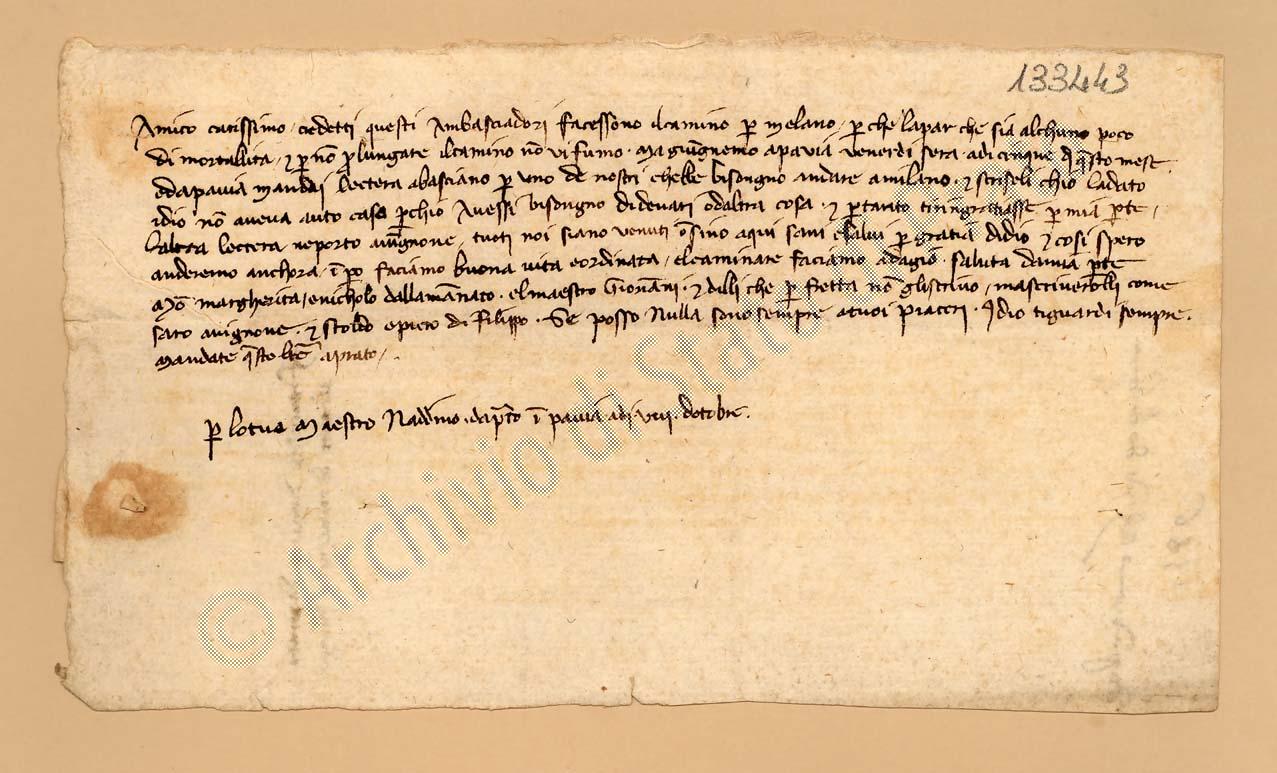 133443
Amico carissimo, credetti questi Ambasciadori facessono ilcamino p̄ melano, p̄ che lapar che sia alchuno poco
di mortallita, & p̄ nō p̄lungare ilcamino nō vi fumo. Ma giūgnemo apavia venerdi sera adi cinque di q̄sto mese
& dapavia mandai lectera abasciano p̄ uno de nostri chebbe bisongno andare amilano. & scriseli chio lodato
idio nō aveva auto caso p̄chio Avessi bisongno didenari odaltra cosa. & p̄tanto tiringratiasse p̄ mia p̄te,
laltra lectera neporto avīgnone, tucti noi siano venuti īsino aqui sani esalvi p̄ gratia didio & cosi spero
anderemo anchora, ī p̄o faciamo buona vita eordinata, elcaminare faciamo adagio. saluta damia p̄te
Mō. margherita, enicholo dallamānato. elmaestro Giovāni. & dilli che p̄ fretta nō gliscrivo, mascriverolli come
saro avignone. & stoldo epiero di Filippo. Se posso Nulla sono sempre atuoi piaceri. Idio tiguardi sempre.
Mandate q̄ste lr̄e aprato,.
p̄ lotuo Maestro Naddino dap̄to ī pavia adi viii. dotobre.
© Archivio di Stato